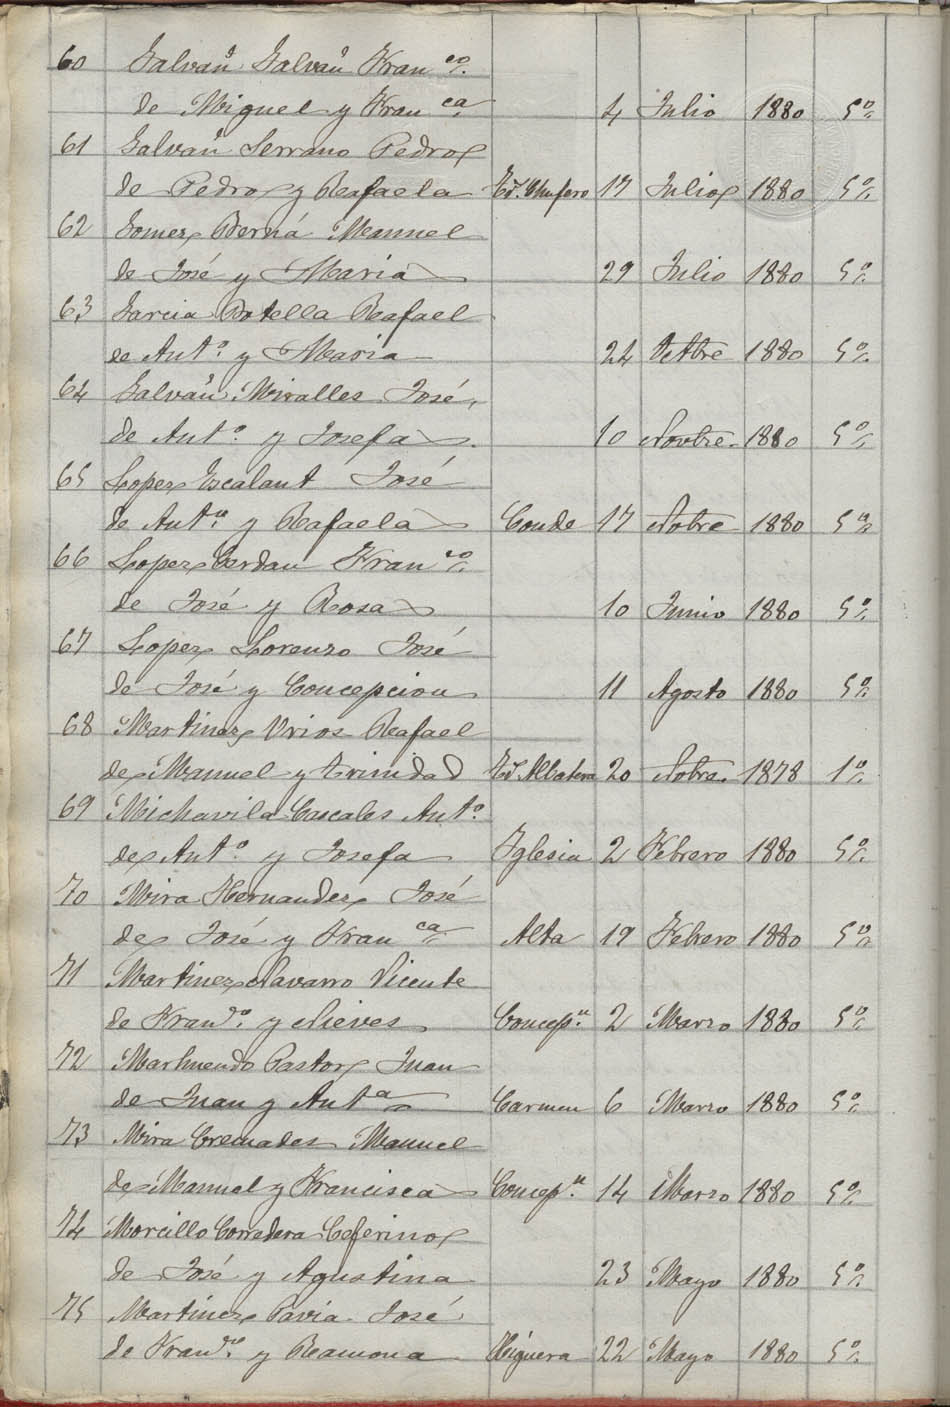 60 Galvañ Galvañ Fran.co
de Miguel y Fran.ca 4 Julio 1880 5º
61 Galvañ Serrano Pedro
de Pedro y Rafaela 17 Julio 1880 5º
62 Gomez Berná Manuel
de José y Maria 29 Julio 1880 5º
63 Garcia Botella Rafael
de Ant.º y Maria 24 Octbre 1880 5º
64 Galvañ Miralles José
de Ant.º y Josefa 10 Novbre 1880 5º
65 Lopez Escalant José
de Ant.º y Rafaela Conde 17 Nobre 1880 5º
66 Lopez Cerdan Fran.co
de José y Rosa 10 Junio 1880 5º
67 Lopez Lorenzo José
de José y Concepcion 11 Agosto 1880 5º
68 Martinez Vrios Rafael
de Manuel y Trinidad Pd.ª Albatera 20 Nobre 1878 1º
69 Michavila Cascales Ant.º
de Ant.º y Josefa Iglesia 2 Febrero 1880 5º
70 Mira Hernandez José
de José y Fran.ca Alta 19 Febrero 1880 5º
71 Martinez Navarro Vicente
de Fran.co y Nieves Concep.n 2 Marzo 1880 5º
72 Marhuendo Pastor Juan
de Juan y Ant.a Carmen 6 Marzo 1880 5º
73 Mira Cremades Manuel
de Manuel y Francisca Concep.n 14 Marzo 1880 5º
74 Morcillo Corredera Ceferino
de José y Agustina 23 Mayo 1880 5º
75 Martinez Pavia José
de Fran.co y Ramona Higuera 22 Mayo 1880 5º